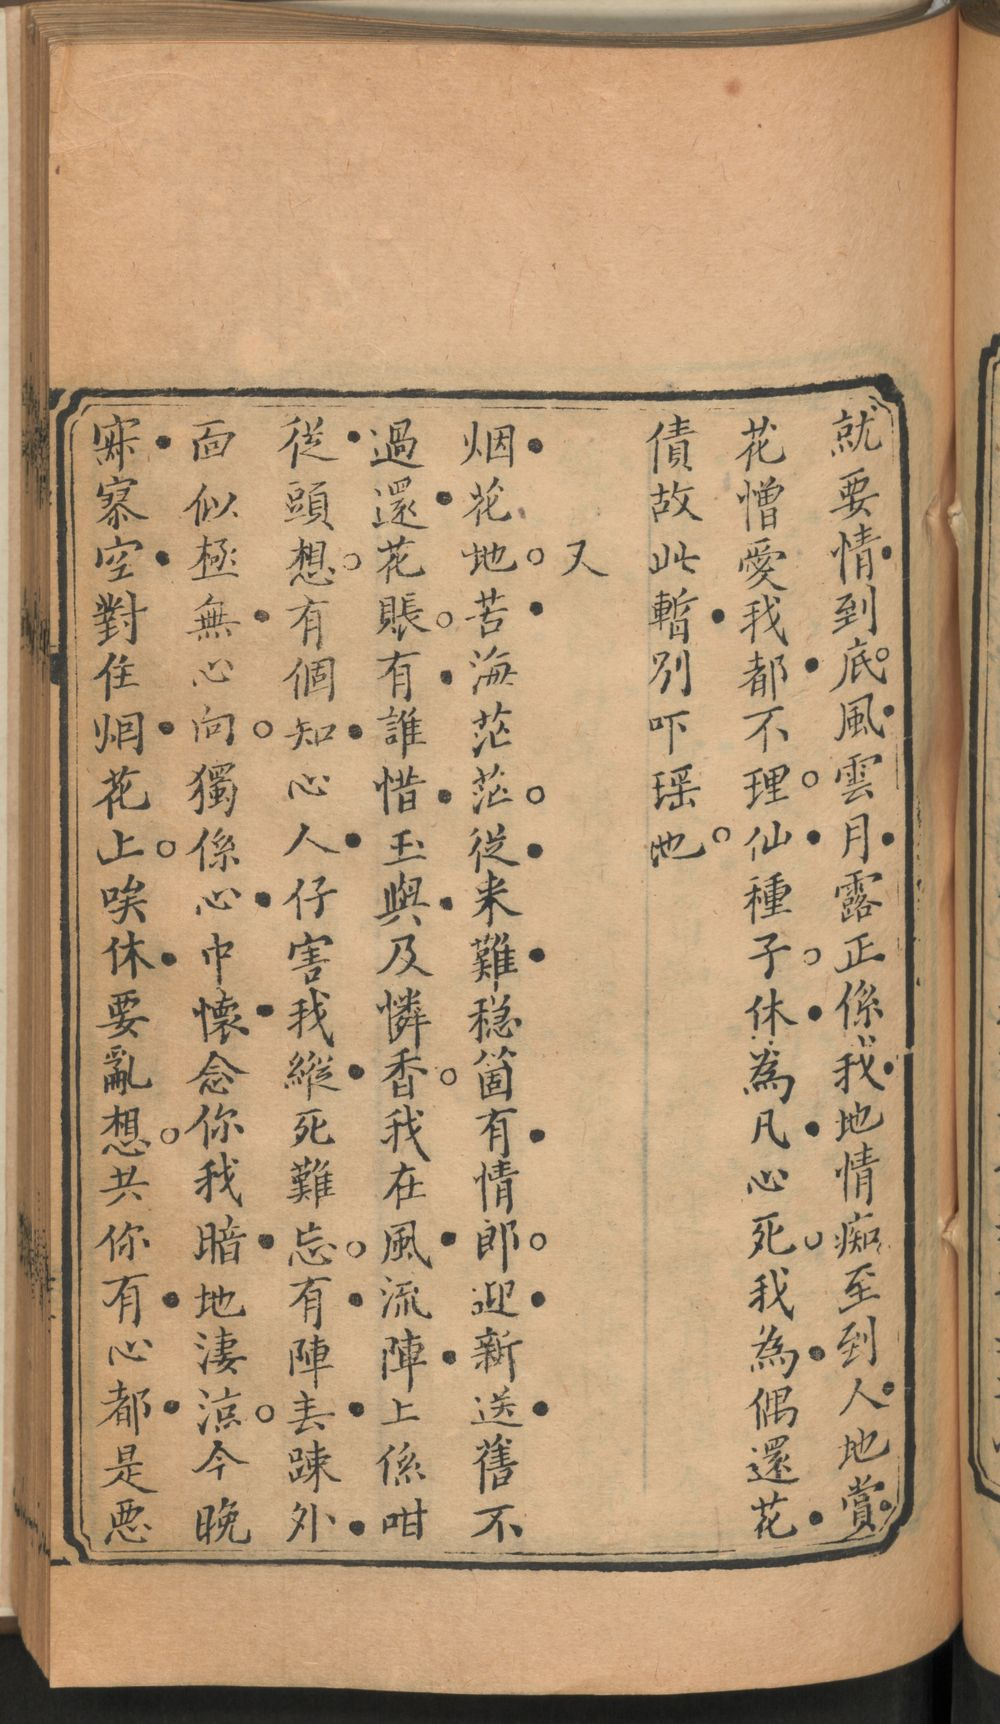 就要情到底風雲月露正係我地情痴至到人地賞
花憎愛我都不理仙種子休為凡心死我為偶還花
債故此暫別吓瑶池
又
烟花地苦海茫茫從来難穏箇有情郎迎新送舊不
過還花賬有誰惜玉與及憐香我在風流陣上係咁
從頭想有個知心人仔害我縱死難忘有陣丟疎外
面似極無心向獨係心中懷念你我暗地淒涼今晚
寂寥空對住烟花上唉休要亂想共你有心都是惡